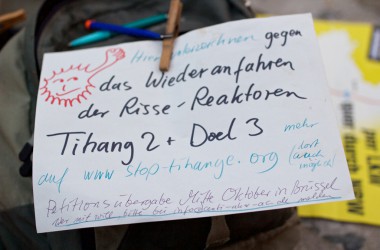 gegen
das Wiederanfahren
der Risse-Reaktoren
Tihang 2 + Doel 3 mehr
auf www.stop-tihange.org (dort auch möglich)
Petitionsübergabe Mitte Oktober in Brüssel
Wer mit will bitte bei